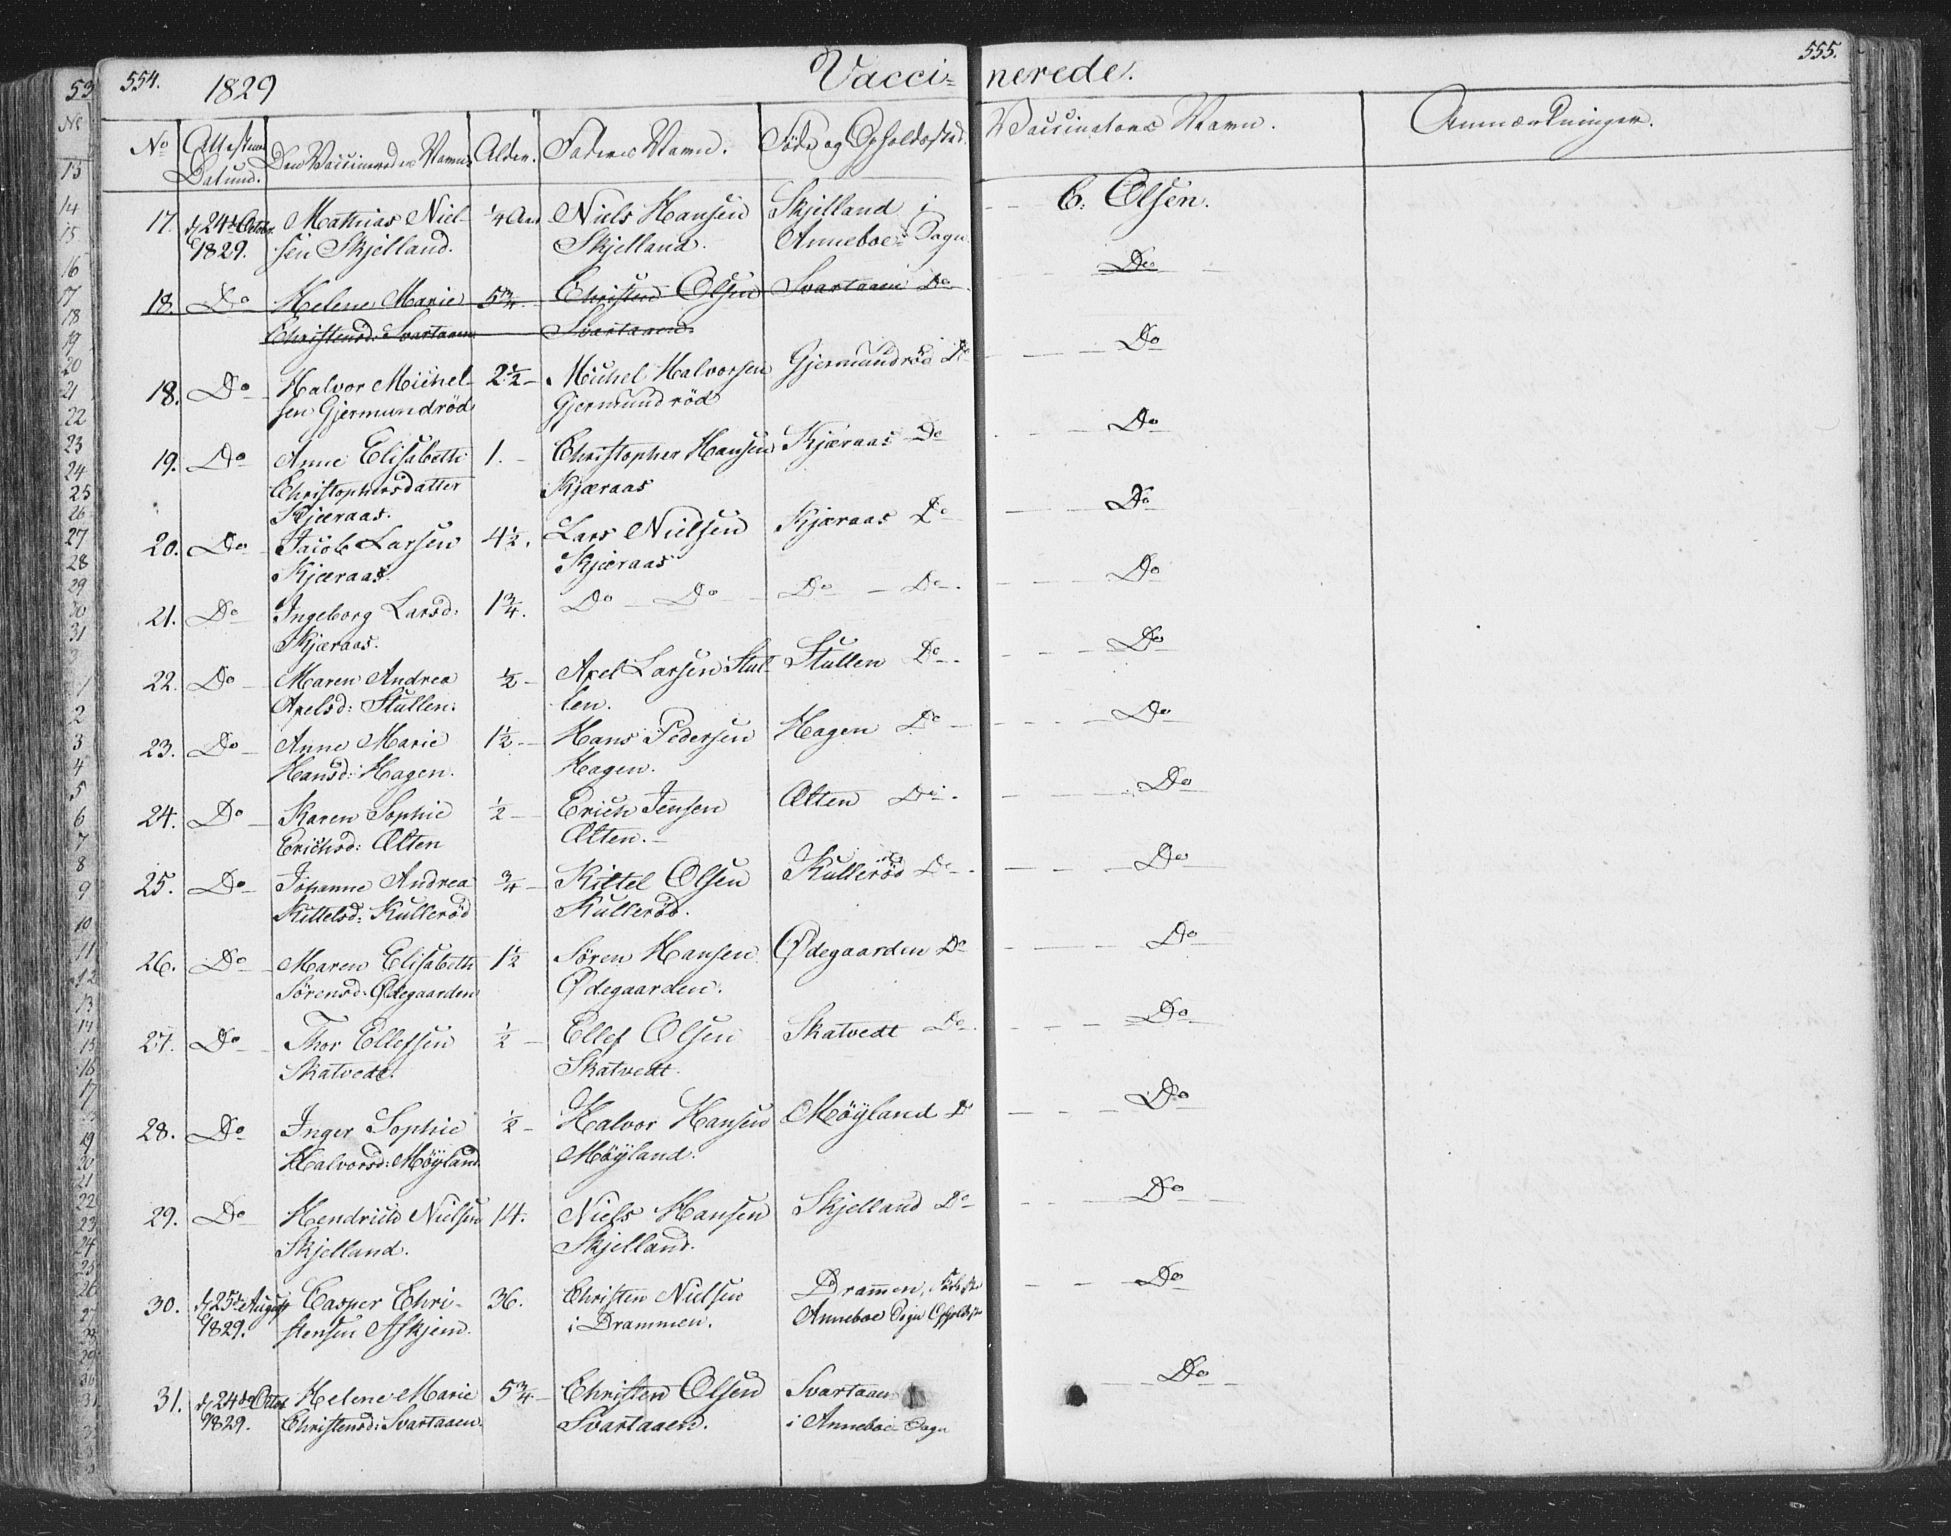 554.
1829
Vacci=
nerede.
555.
No
Attestens Datum.
Den Vaccineredes Navn.
Alder.
Faderns Navn.
Føde og Opholdssted.
Vaccinateurs Navn.
Anmærkninger.
17. d. 24de Octobr. Mathias Niel- ¼ Aar Niels Hansen Skjelland i C. Olsen.
1829. sen Skjelland. Skjelland. Anneboe Sogn
18. Do Helene Marie 5¾ Christen Olsen Svartaaen Do Do
Christensd: Svartaaen Svartaaen
18. Do Halvor Michel- 2½ Michel Halvorsen Gjermundrød Do Do
sen Gjermundrød Gjermundrød
19. Do Anne Elisabeth 1. Christopher Hansen Kjæraas Do Do
Christophersdatter Kjæraas
Kjæraas.
20. Do Jacob Larsen 4½. Lars Nielsen Kjæraas Do Do
Kjæraas. Kjæraas
21. Do Ingeborg Larsd: 1¾. Do Do Do Do Do
Kjæraas.
22. Do Maren Andrea ½ Axel Larsen Stul- Stullen Do Do
Axelsd: Stullen. len.
23. Do Anne Marie 1½ Hans Pedersen Hagen Do Do
Hansd: Hagen. Hagen.
24. Do Karen Sophie ½ Erich Jensen Olten Do Do
Erichsd: Olten Olten.
25. Do Johanne Andrea ¾ Kittel Olsen Kullerød Do Do
Kittelsd: Kullerød Kullerød.
26. Do Maren Elisabeth 1½ Sören Hansen Ødegaarden Do Do
Sörensd: Ødegaarden Ødegaarden.
27. Do Thor Ellefsen ½ Ellef Olsen Skatvedt Do Do
Skatvedt. Skatvedt.
28. Do Inger Sophie ½ Halvor Hansen Møÿland Do Do
Halvorsd: Møÿland Møÿland.
29. Do Hendrich Nielsen 14. Niels Hansen Skjelland Do Do
Skjelland. Skjelland.
30. d. 25de August Casper Chri- 36. Christen Nielsen Drammen, Do
1829. stensen Askjem. i Drammen. Anneboe Sogn
31. d. 24de Octobr Helene Marie 5¾ Christen Olsen Svartaaen Do
1829. Christensd: Svartaaen. Svartaaen. i Anneboe Sogn